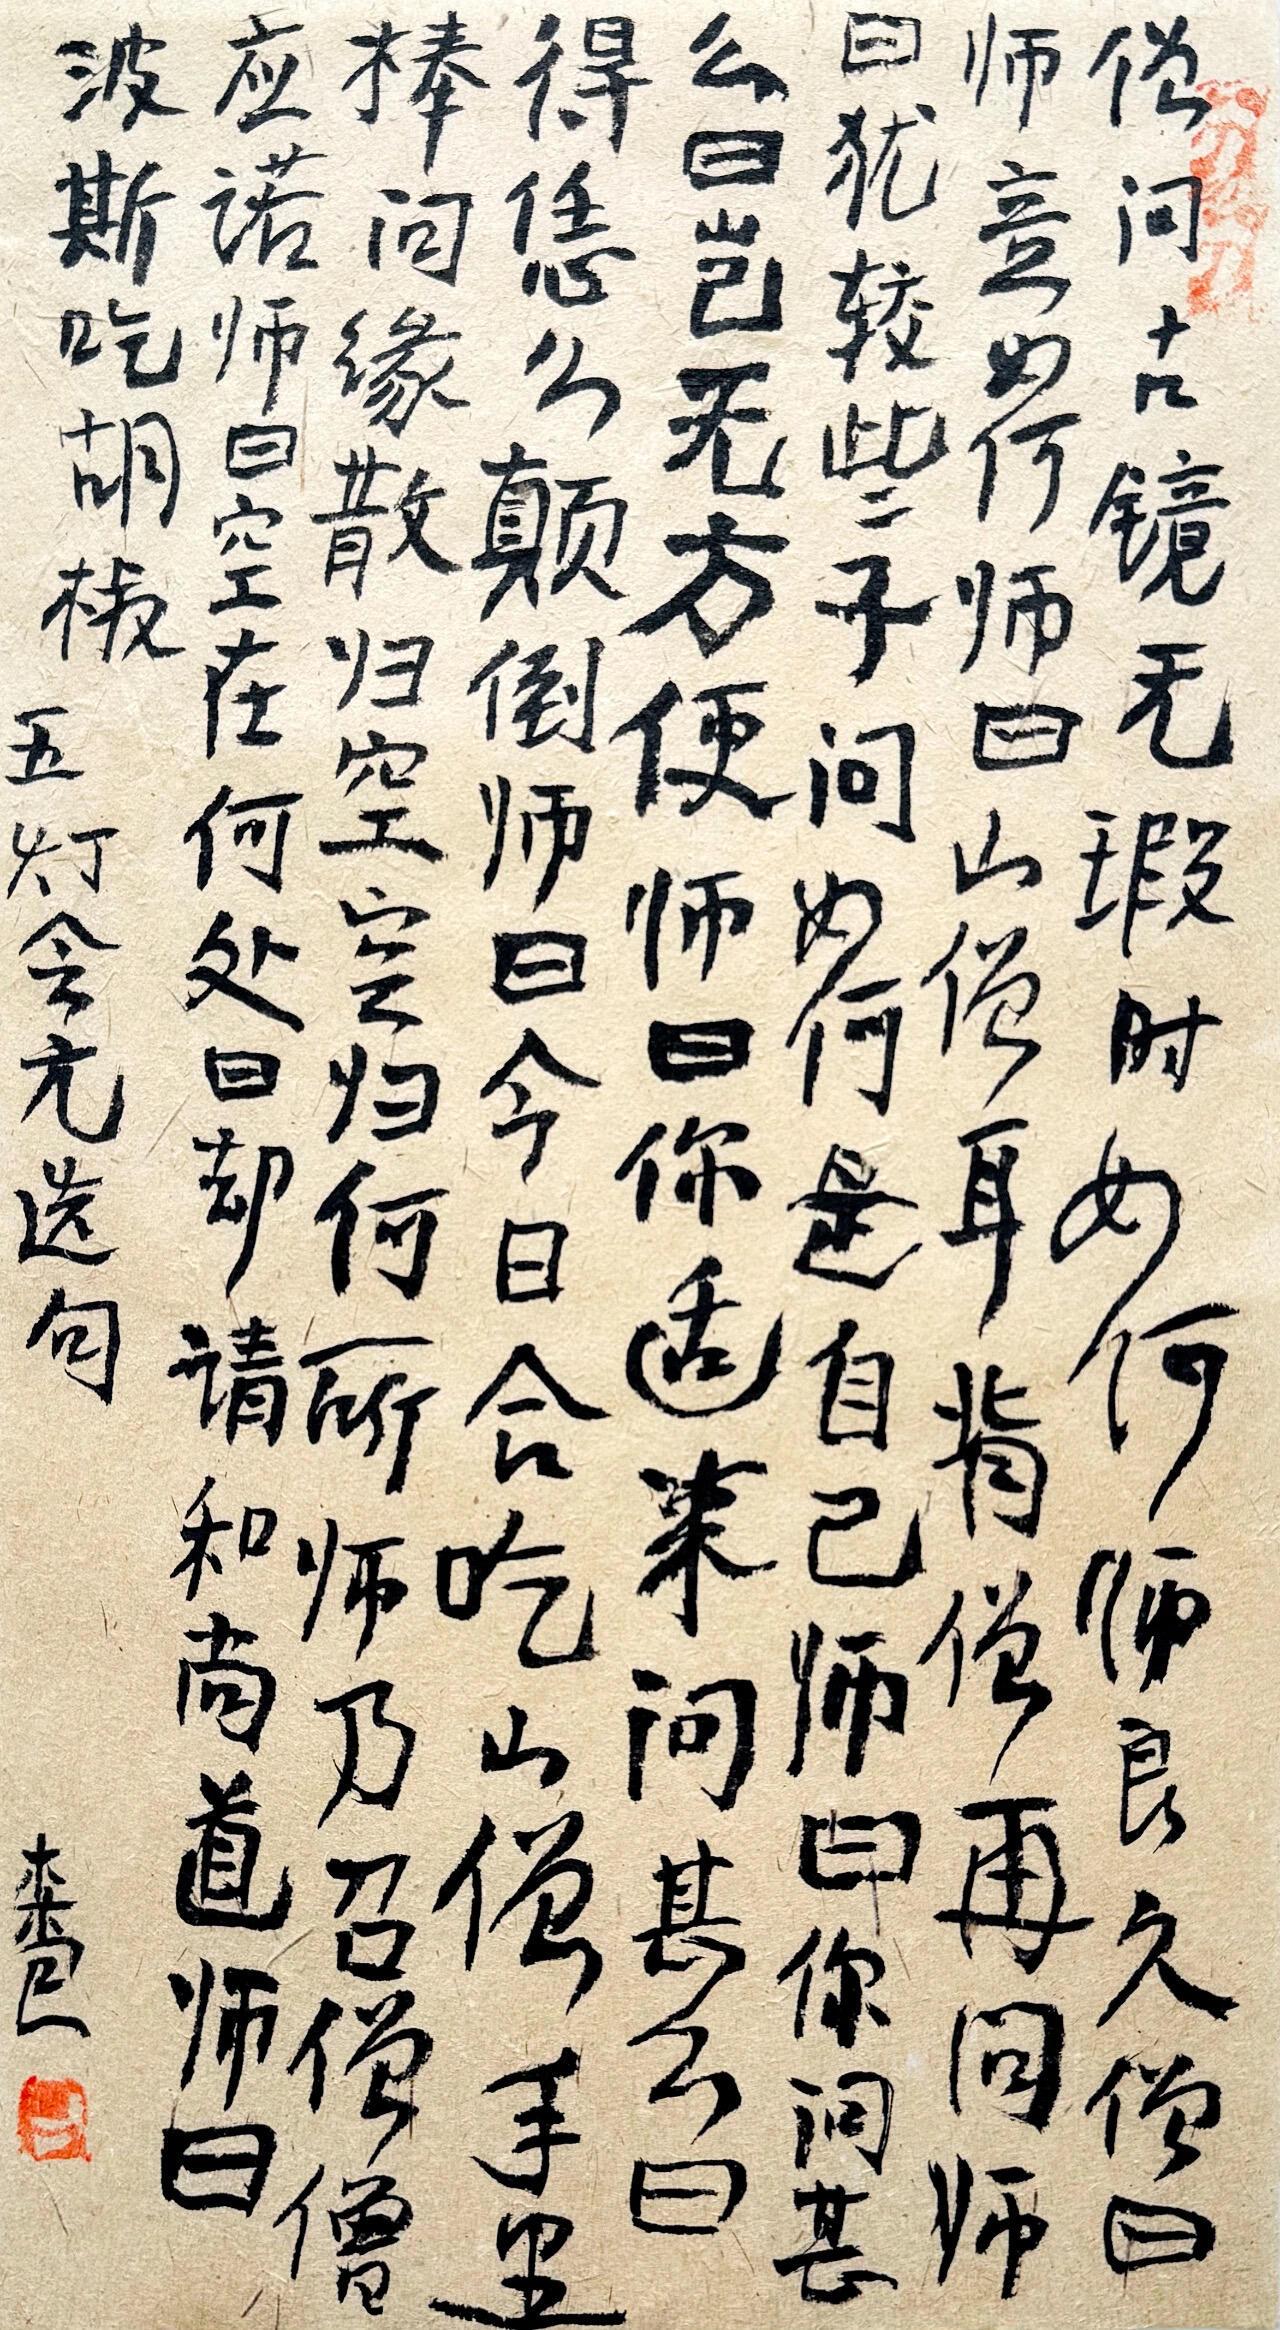 僧问古镜无瑕时如何师良久僧曰
师意如何师曰山僧耳背僧再问师
曰犹较些子问如何是自己师曰你问甚
么曰岂无方便师曰你适来问甚么曰
得恁么颠倒师曰今日合吃山僧手里
棒问缘散归空空归何所师乃召僧僧
应诺师曰空在何处曰却请和尚道师曰
波斯吃胡椒
五灯会元选句